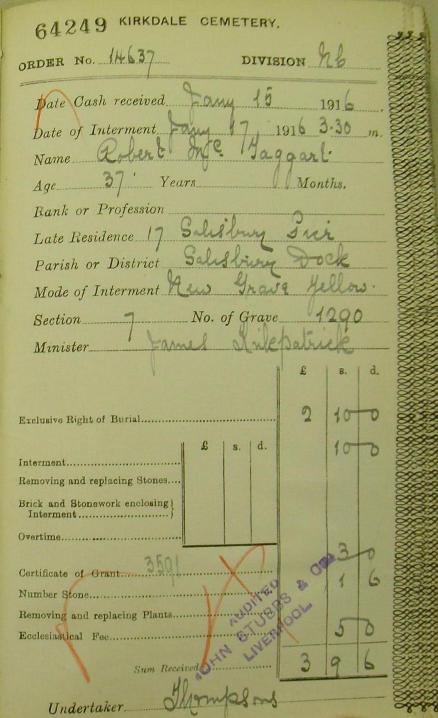 64249 KIRKDALE CEMETERY.
ORDER No. 14637 DIVISION NC
Date Cash received Jany 15 1916
Date of Interment Jany 17, 1916 3-30 m.
Name Robert Mc Taggart
Age 37 Years Months.
Rank or Profession
Late Residence 17 Salisbury Pier
Parish or District Salisbury Dock
Mode of Interment New Grave Yellow.
Section 7 No. of Grave 1290
Minister James Kirkpatrick
£ s. d.
Exclusive Right of Burial 2 10 0
£ s. d. 10 0
Interment
Removing and replacing Stones
Brick and Stonework enclosing
Interment
Overtime
Certificate of Grant 3591 3 0
Number Stone 1 6
Removing and replacing Plants
Ecclesiastical Fee 5 0
Sum Received 3 9 6
AUDITED
JOHN STUBBS & Co
LIVERPOOL
Undertaker Thompsons